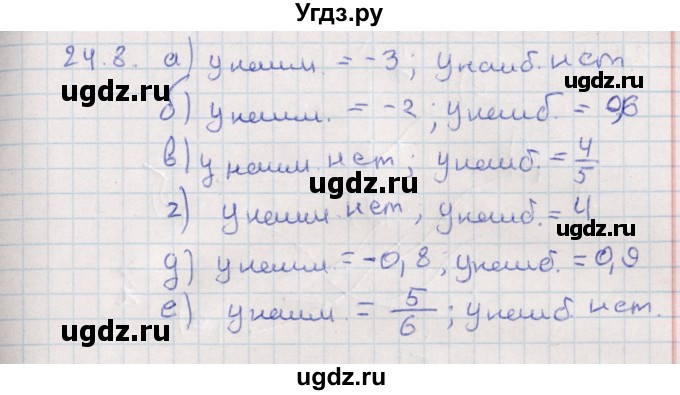 Угдз.ру
24.8. а) y наим. = -3; y наиб. нет.
ugdz.ru ugdz.ru
б) y наим. = -2; y наиб. = 0,6
в) y наим. нет; y наиб. = 4/5
ugdz.ru
г) y наим. нет; y наиб. = 4
ugdz.ru
д) y наим. = -0,8; y наиб. = 0,9
ugdz.ru ugdz.ru
е) y наим. = 5/6; y наиб. нет.
ugdz.ru ugdz.ru
ugdz.ru